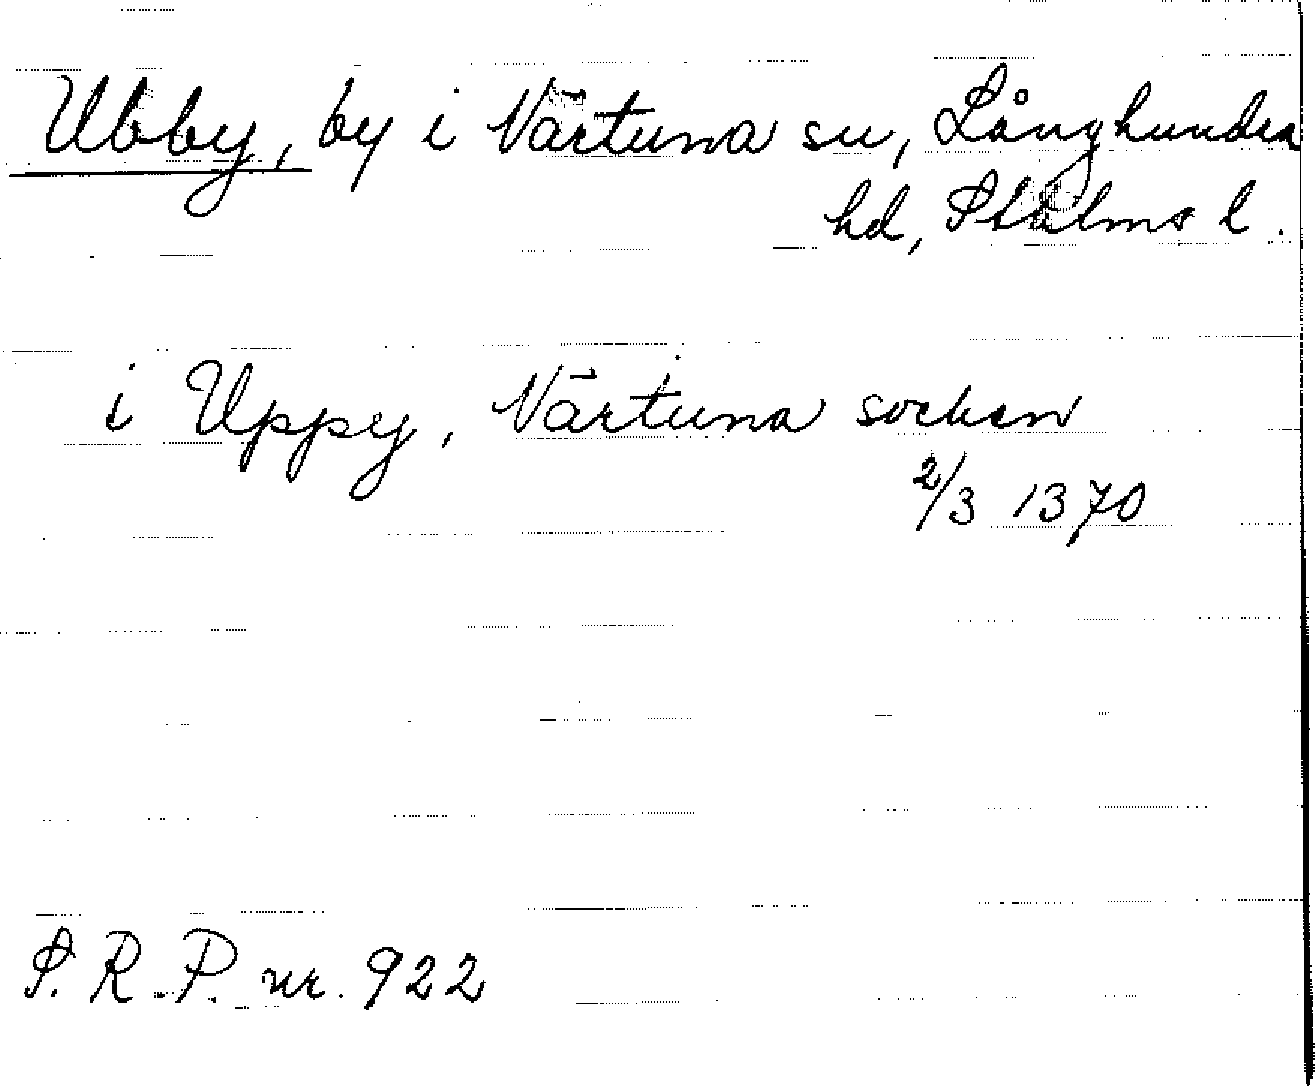 Ubby, by i Närtuna sn, Långhundra
hd, Sthlms l.
i Uppy, Närtuna socken
2/3 1370
S. R. P. nr. 922